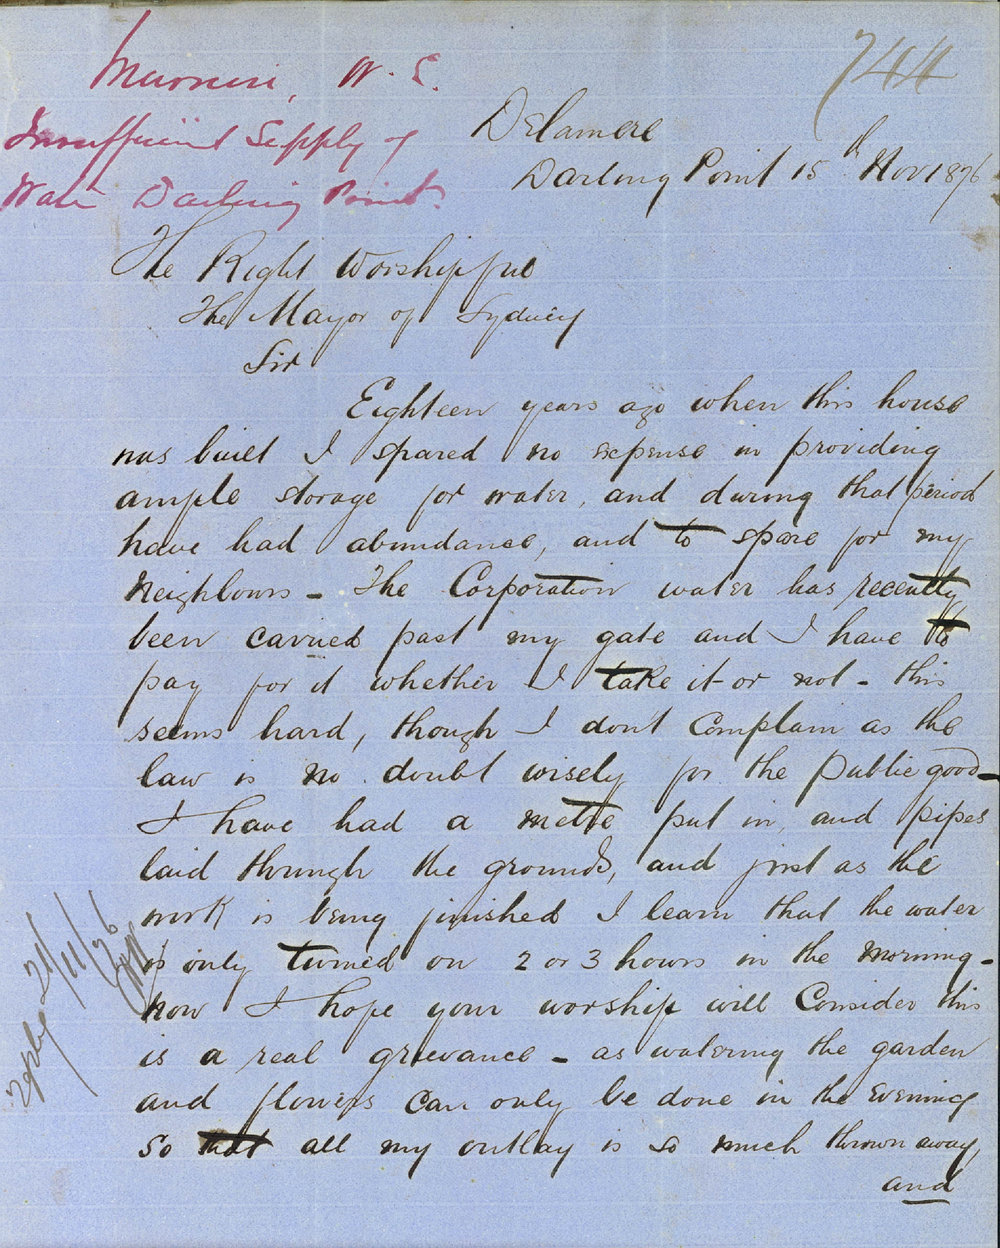 744
W. E.
Insufficient Supply of
Water Darling Point.
Delamere
Darling Point 15th Nov 1876
The Right Worshipful
The Mayor of Sydney
Sir
Eighteen years ago when this house
was built I spared no expense in providing
ample storage for water, and during that period
have had abundance, and to spare for my
Neighbours - The Corporation water has recently
been carried past my gate and I have to
pay for it whether I take it or not - this
seems hard, though I dont Complain as the
law is no doubt wisely for the public good -
I have had a metre put in, and pipes
laid through the grounds, and just as the
work is being finished I learn that the water
is only turned on 2 or 3 hours in the morning -
now I hope your worship will Consider this
is a real grievance - as watering the garden
and flowers can only be done in the Evening
So that all my outlay is so much thrown away,
and
21/11/76